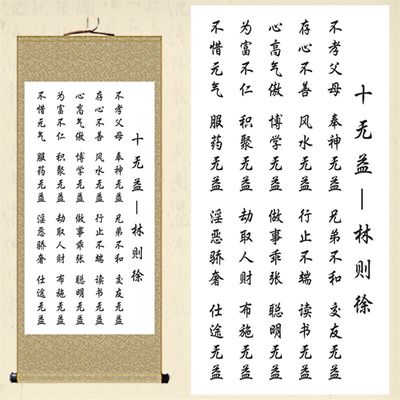 十无益—林则徐
不孝父母 奉神无益 兄弟不和 交友无益
存心不善 风水无益 行止不端 读书无益
心高气傲 博学无益 做事乖张 聪明无益
为富不仁 积聚无益 劫取人财 布施无益
不惜元气 服药无益 淫恶骄奢 仕途无益
十无益—林则徐
不孝父母 奉神无益 兄弟不和 交友无益
存心不善 风水无益 行止不端 读书无益
心高气傲 博学无益 做事乖张 聪明无益
为富不仁 积聚无益 劫取人财 布施无益
不惜元气 服药无益 淫恶骄奢 仕途无益